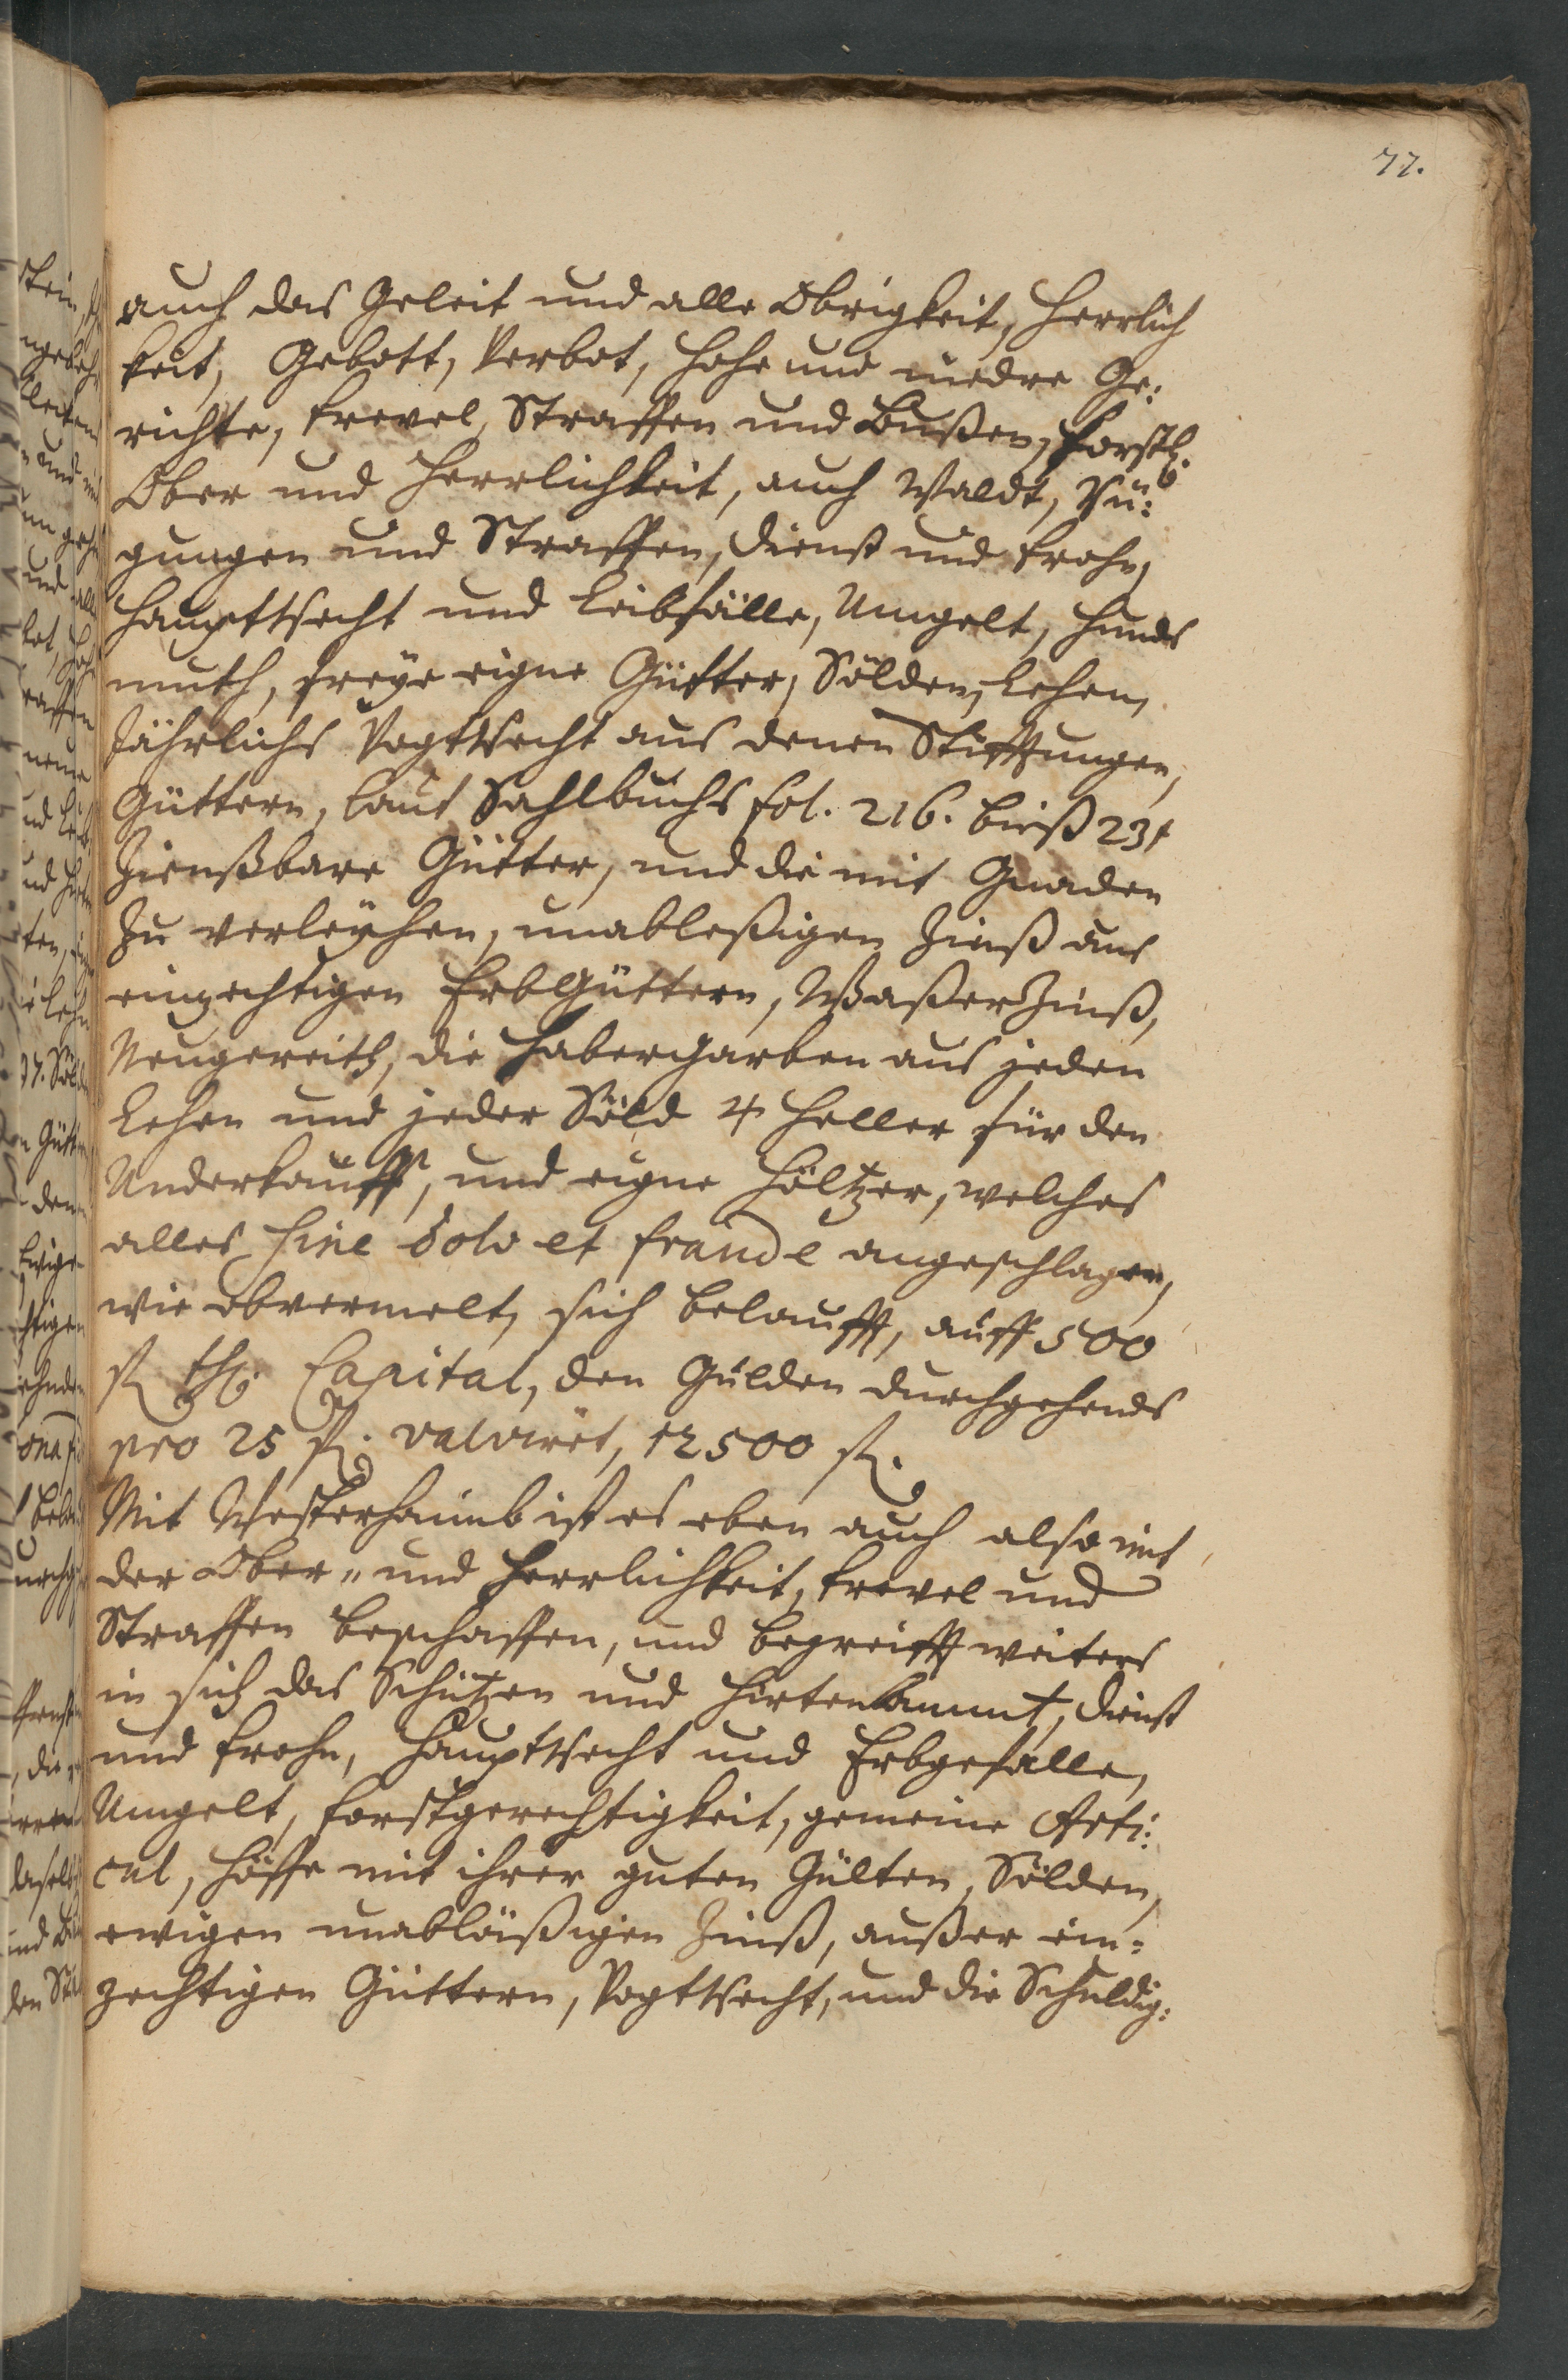 77.
auch das Geleit und alle Obrigkeit, Herrlich
keit, Gebott, Verbot, hohe und niedre Ge:
richte, frevel, Straffen und Bußen, forstl.
Ober und Herrlichkeit, auch Waldt, Rü:
gungen und Straffen, Dienst und frohn,
Haupttrecht und Leibfälle, Umgelt, Hunds
muth, freye eigne Gütter, Sölden, Lehen,
Jährlichs Vogttrecht aus denen Stifftungen,
Güttern, laut Sahlbuchs fol. 216. bieß 231
Zienßbare Gütter, und die mit Gnaden
zu verleyhen, unableßigen Zinß aus
einzechtigen ErbGüttern, WaßerZinß,
Neugereith, die Habergarben aus jeden
Lehen und jeder Söld 4 Heller für den
Underkauff, und eigne Höltzer, welches
alles sine dolo et fraude angeschlagen,
wie obvermelt, sich belaufft, auff 500
fl. Capital, den Gulden durchgehends
pro 25 fl. valviret, 12500 fl.
Mit Westerhaimb ist es eben auch also mit
der Ober- und Herrlichkeit, frevel und
Straffen beschaffen, und begreifft weiters
in sich das Schützen und Hirtenbammt, Dienst
und frohn, Haupttrecht und Erbgefälle,
Umgelt, forstgerechtigkeit, gemeine Arti:
cul, Höffe mit ihrer guten Gülten, Sölden,
ewigen unabläßigen Zinß, außer ein=
zechtigen Güttern, Vogttrecht, und die Schuldig: